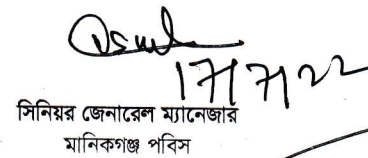 17/7/22
সিনিয়র জেনারেল ম্যানেজার
মানিকগঞ্জ পবিস